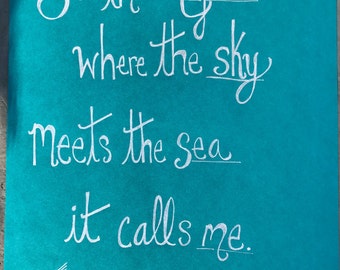 in
where the sky
meets the sea
it calls me.